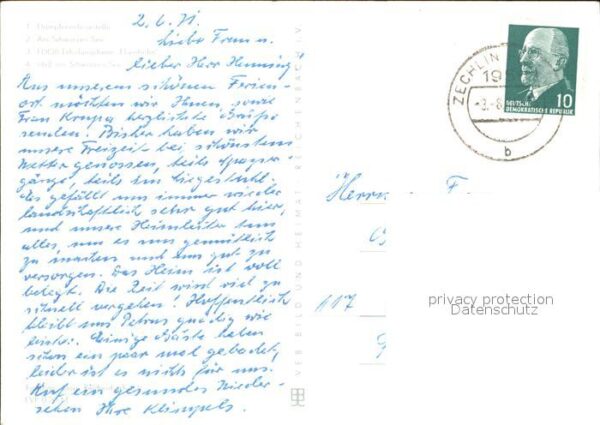 2.6.71.
Liebe Frau u.
lieber Herr Henning!
Aus unserem schönen Ferien-
ort möchten wir Ihnen, sowie
Frau Krupa herzliche Grüße
senden. Bisher haben wir
unsere Freizeit bei schönstem
Wetter genossen, teils Spazier-
gänge, teils im Liegestuhl.
Es gefällt uns immer wieder
landschaftlich sehr gut hier,
und unsere Heimleiter tun
alles, um es uns gemütlich
zu machen und uns gut zu
versorgen. Das Heim ist voll
belegt. Die Zeit wird viel zu
schnell vergehen! Hoffentlich
bleibt uns Petrus gnädig wie
bisher. Einige Gäste haben
schon ein paar mal gebadet,
leider ist es nichts für uns.
Auf ein gesundes Wieder-
sehen Ihre Klimpels.
VEB BILD UND HEIMAT REICHENBACH I. V.
ZECHLIN
19
b
DEUTSCHE
DEMOKRATISCHE REPUBLIK
10
Herrn F
117
privacy protection
Datenschutz